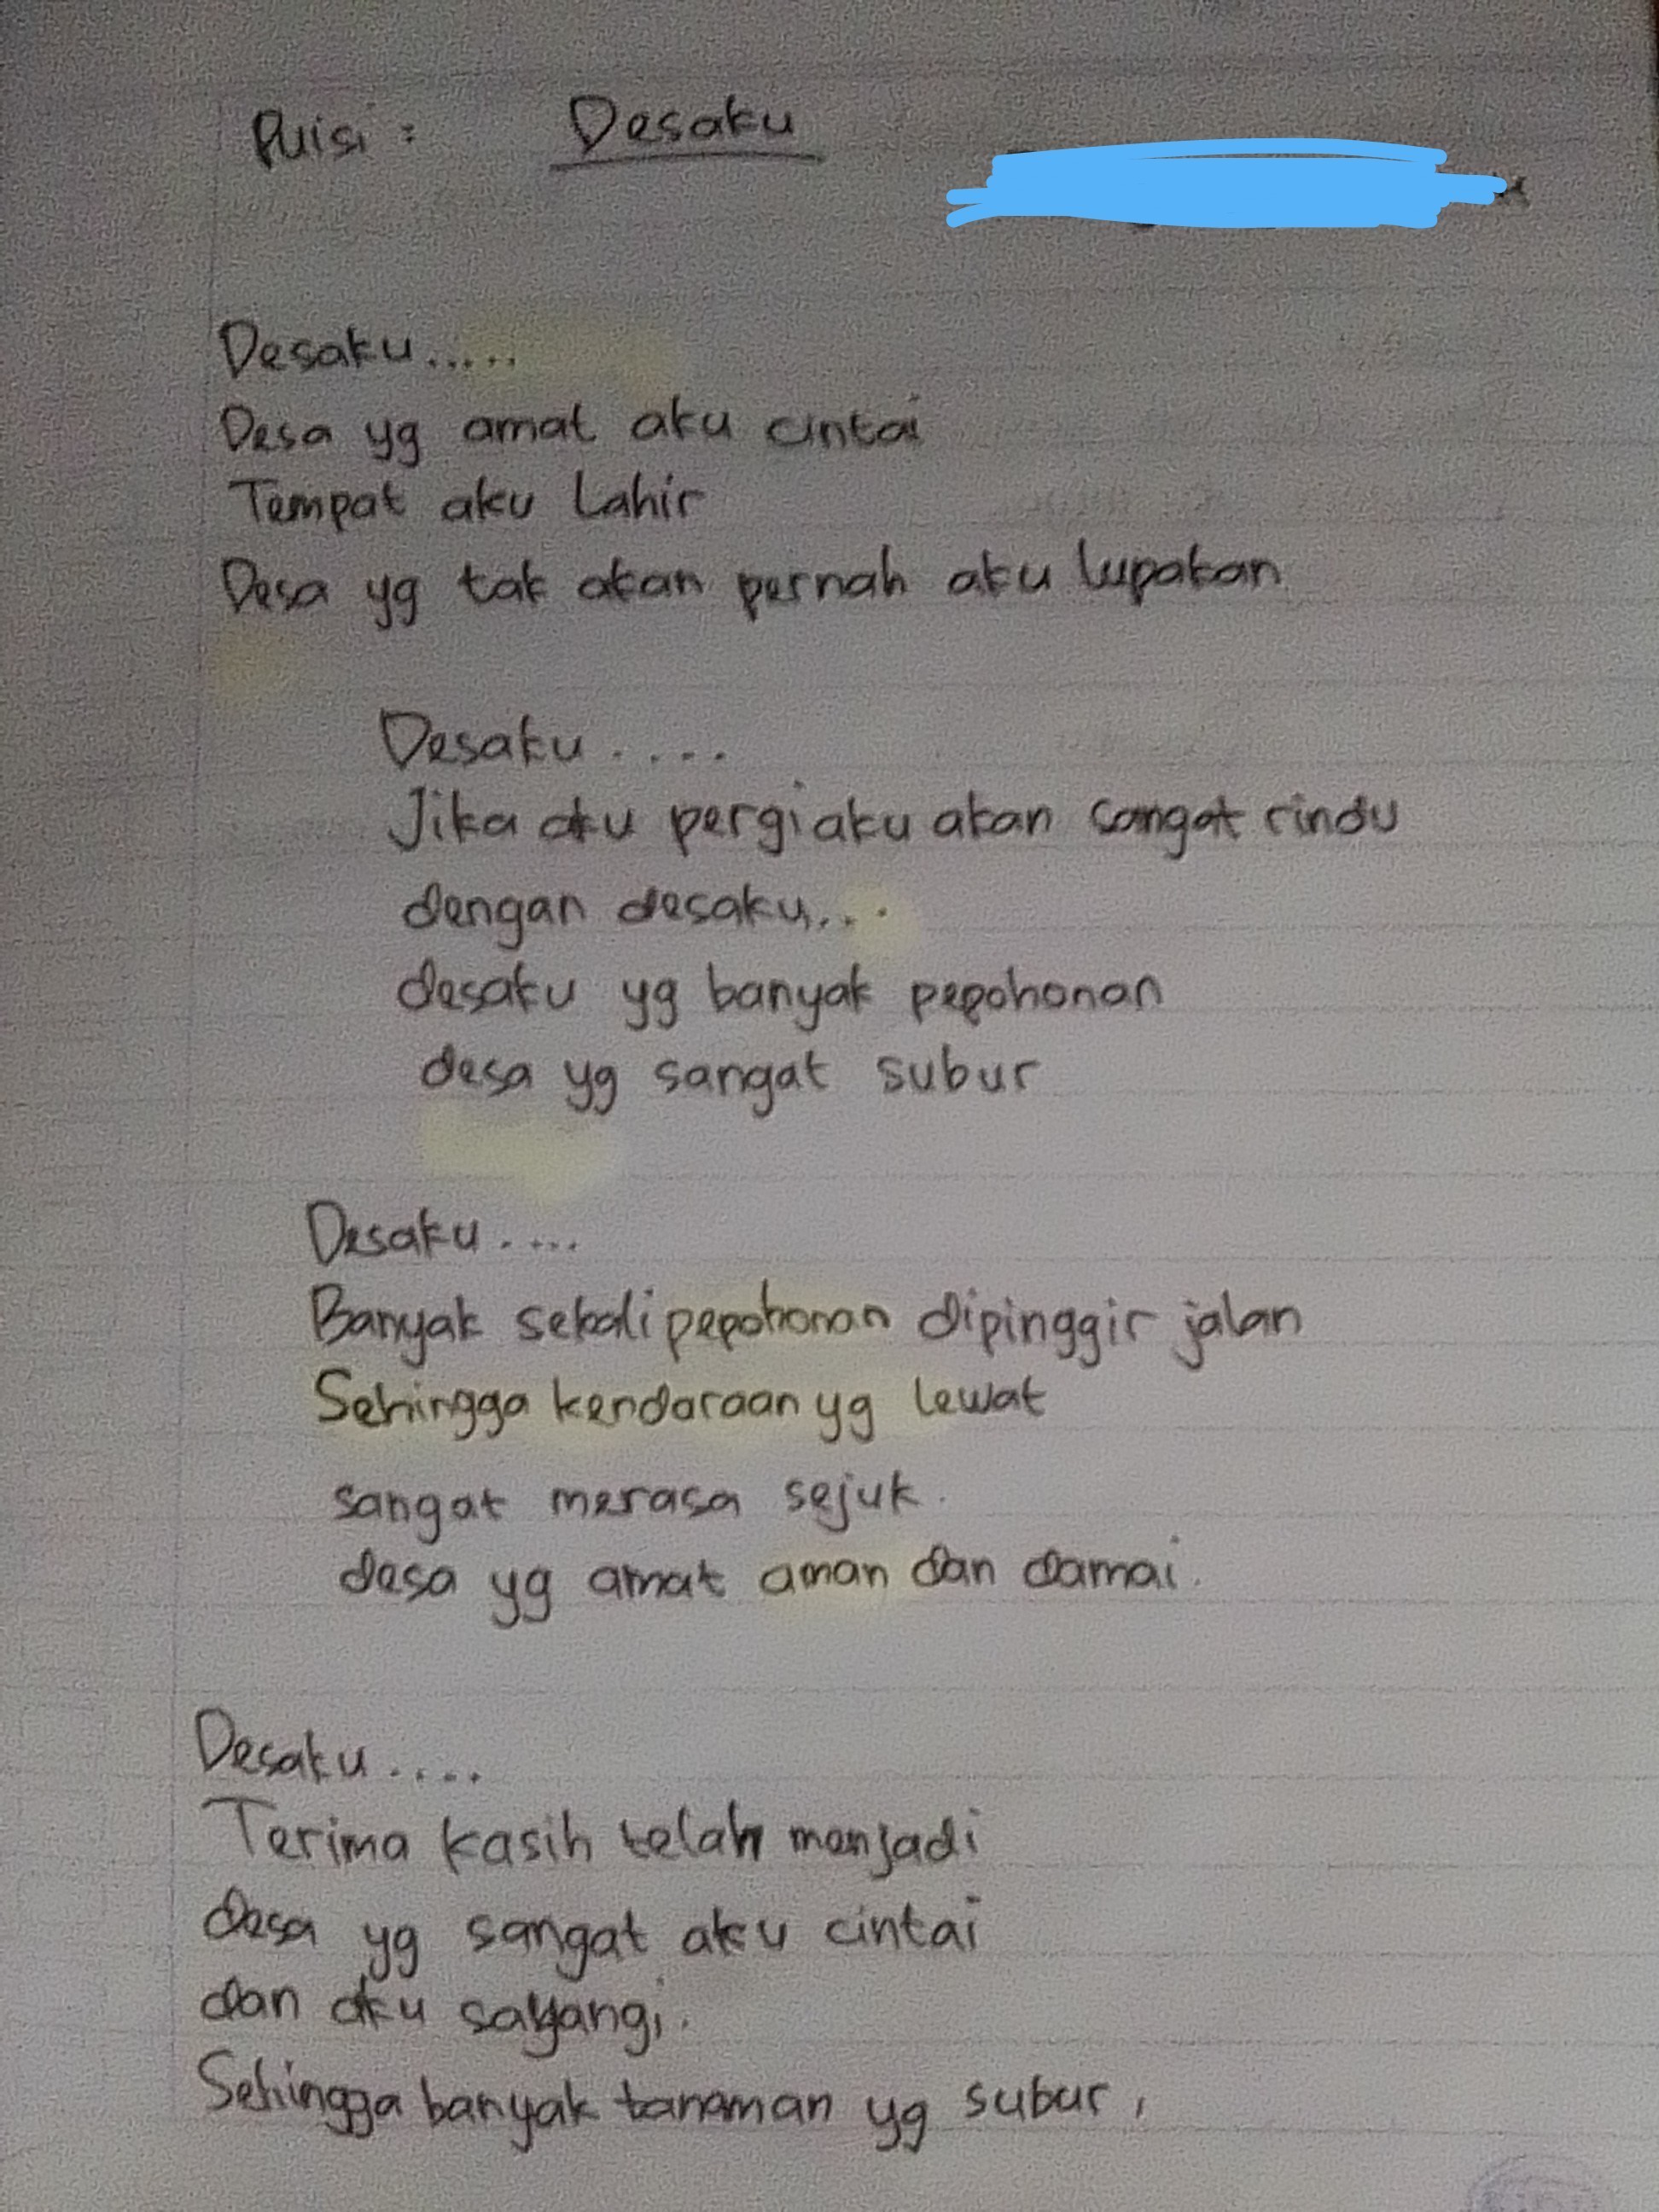 Puisi : Desaku
Desaku.....
Desa yg amat aku cintai
Tempat aku Lahir
Desa yg tak akan pernah aku lupakan
Desaku ....
Jika aku pergi aku akan sangat rindu
dengan desaku...
desaku yg banyak pepohonan
desa yg sangat subur
Desaku ....
Banyak sekali pepohonan dipinggir jalan
Sehingga kendaraan yg lewat
sangat merasa sejuk.
desa yg amat aman dan damai.
Desaku ....
Terima kasih telah menjadi
desa yg sangat aku cintai
dan aku sayangi.
Sehingga banyak tanaman yg subur,